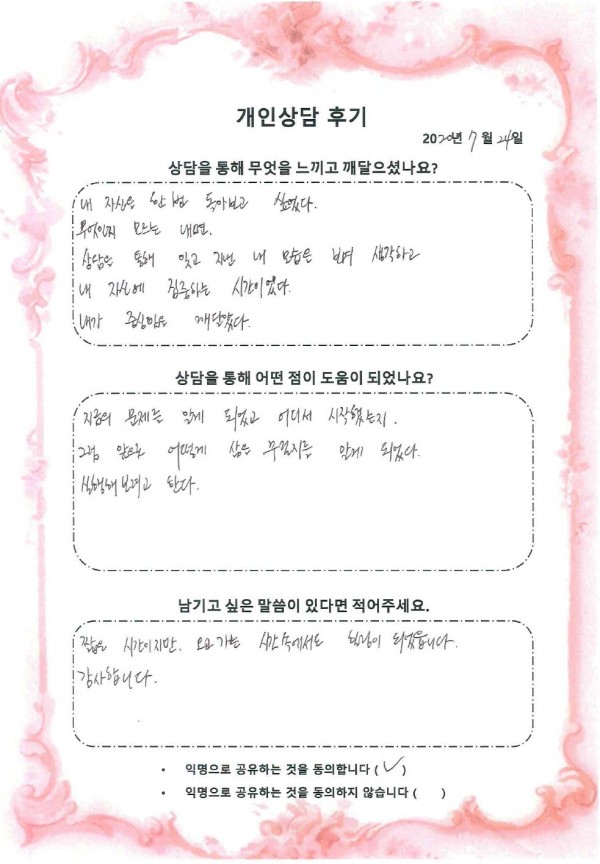 개인상담 후기
2020년 7월 24일
상담을 통해 무엇을 느끼고 깨달으셨나요?
내 자신을 한번 돌아보고 싶었다.
무엇인지 모르는 내면.
상담을 통해 잊고 지낸 내 모습을 보며 생각하고
내 자신에 집중하는 시간이었다.
내가 중심임을 깨달았다.
상담을 통해 어떤 점이 도움이 되었나요?
지금의 문제를 알게 되었고 어디서 시작했는지.
그럼 앞으로 어떻게 삶을 꾸릴지를 알게 되었다.
실행해보려고 한다.
남기고 싶은 말씀이 있다면 적어주세요.
짧은 시간이지만. 오고가는 시간속에서도 힐링이 되었습니다.
감사합니다.
• 익명으로 공유하는 것을 동의합니다 ( ✓ )
• 익명으로 공유하는 것을 동의하지 않습니다 ( )